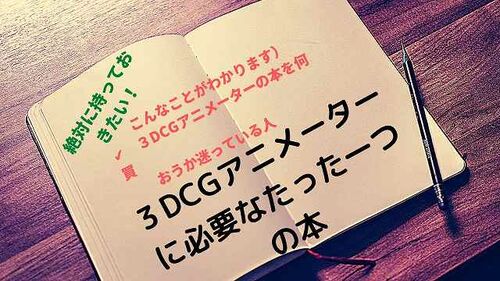 絶対に持ってお
きたい！
こんなことがわかります）
✓ ３DCGアニメーターの本を何
買 おうか迷っている人
３DCGアニメーター
に必要なたった一つ
の本